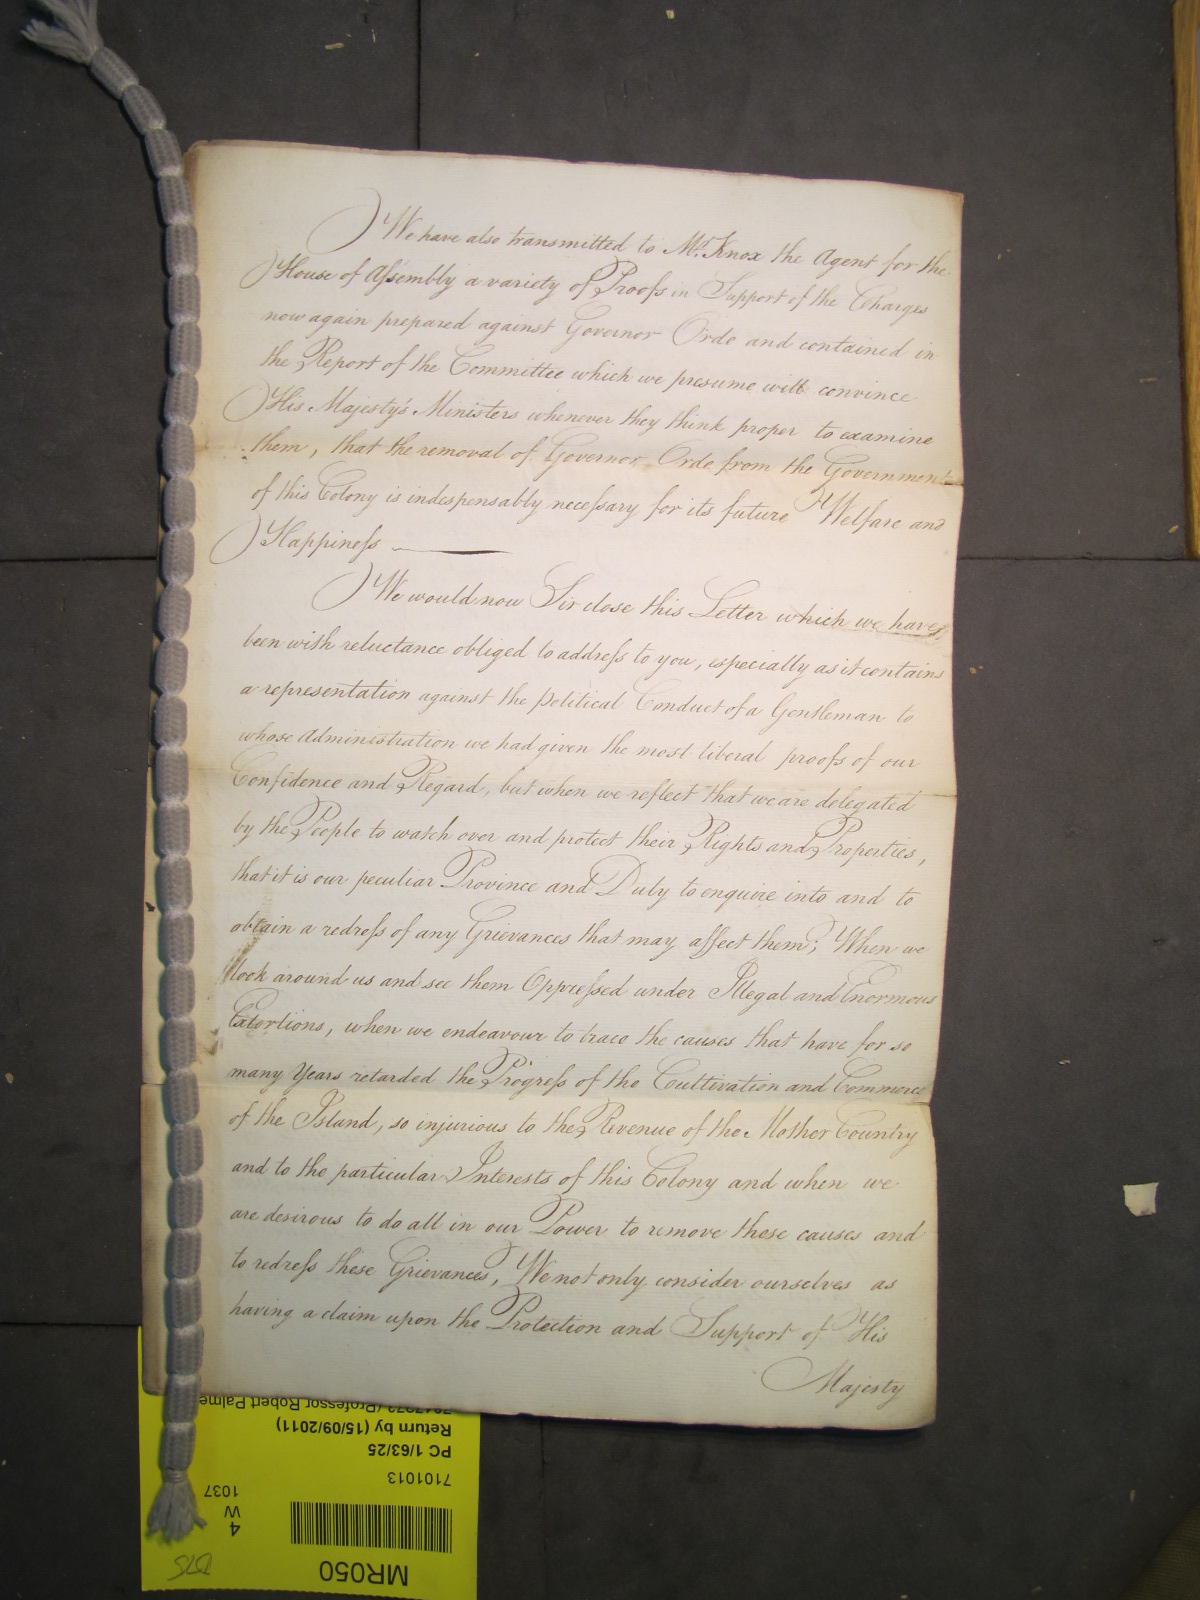 We have also transmitted to Mr. Knox the Agent for the
House of Assembly a variety of Proofs in Support of the Charges
now again prepared against Governor Orde and contained in
the Report of the Committee which we presume will convince
His Majesty's Ministers whenever they think proper to examine
them, that the removal of Governor Orde from the Government
of this Colony is indespensably necessary for its future Welfare and
Happiness
We would now Sir close this Letter which we have,
been with reluctance obliged to address to you, especially as it contains
a representation against the political Conduct of a Gentleman to
whose Administration we had given the most liberal proofs of our
Confidence and Regard, but when we reflect that we are delegated
by the People to watch over and protect their Rights and Properties,
that it is our peculiar Province and Duty to enquire into and to
obtain a redress of any Grievances that may affect them; When we
look around us and see them Oppressed under Illegal and Enormous
Extortions, when we endeavour to trace the causes that have for so
many Years retarded the Progress of the Cultivation and Commerce
of the Island, so injurious to the Revenue of the Mother Country
and to the particular Interests of this Colony and when we
are desirous to do all in our Power to remove these causes and
to redress these Grievances, We not only consider ourselves as
having a claim upon the Protection and Support of His
Majesty
MR050
4
W
1037
7101013
PC 1/63/25
Return by (15/09/2011)
(Professor Robert Palme